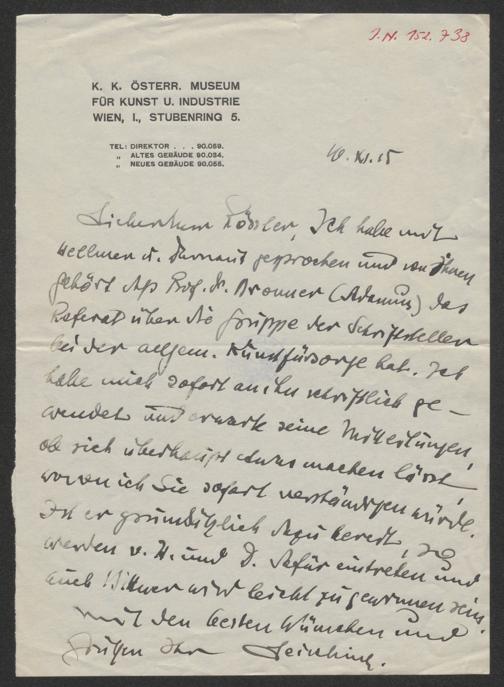 J.N. 152.738
K. K. ÖSTERR. MUSEUM
FÜR KUNST U. INDUSTRIE
WIEN, I., STUBENRING 5.
TEL: DIREKTOR . . . 90.059.
„ ALTES GEBÄUDE 90.034.
„ NEUES GEBÄUDE 90.055.
XI. 15
Lieber Herr Rössler, Ich habe mit
Hellmer u. Darnaut gesprochen und von Ihnen
gehört daß Prof. Dr. Bronner (Adamus) das
Referat über die Gruppe der Schriftsteller
bei der allgem. Kunstfürsorge hat. Ich
habe mich sofort an ihn schriftlich ge-
wendet und erwarte seine Mitteilungen,
ob sich überhaupt etwas machen lässt,
wovon ich Sie sofort verständigen würde.
Ist er grundsätzlich dazu bereit, so
werden v. H. und D. dafür eintreten und
auch wird leicht zu gewinnen sein.
Mit den besten Wünschen und
Grüßen Ihr Leisching.